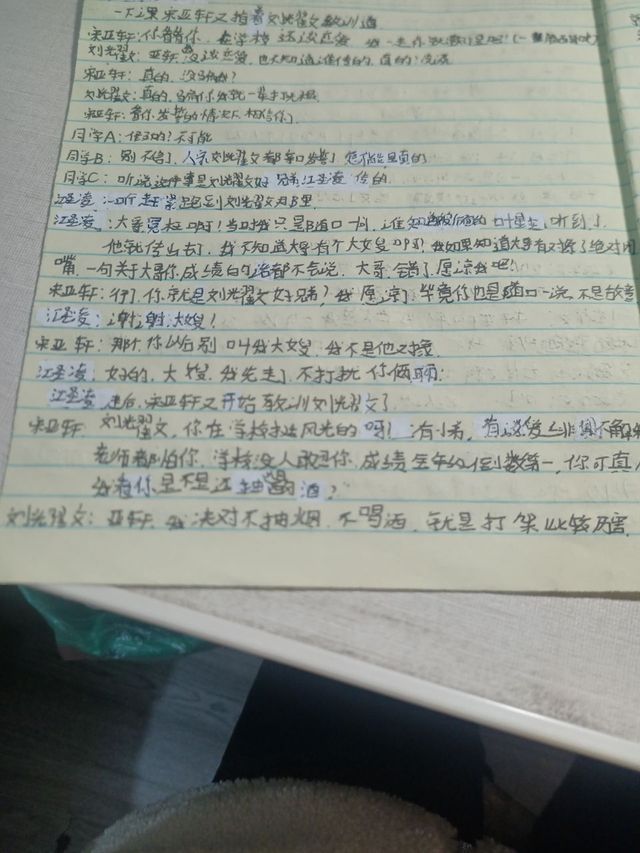 一下课宋亚轩又揪着刘光翟文教训道
宋亚轩:你看看你,在学校还谈恋爱
刘光翟文:亚轩没谈恋爱,也不知道谁传的,真的!没谈
宋亚轩:真的,没骗我?
刘光翟文:真的,骗你我就一辈打光棍
宋亚轩:看你发誓的情况下,相信你了
同学A:假的?不可能
同学B:别不信了,人家刘光翟文都亲口发誓了,怎么能是真的
同学C:听说这件事是刘光翟文好兄弟江圣凌传的
江圣凌一听赶紧跑到刘光翟文那里
江圣凌:大哥冤枉啊!当时我只是随口一说,谁知道被听到了
他就传出去了,我不知道大哥有个大嫂啊!我如果知道大哥有对象了绝对闭
嘴,一句关于大哥你,成绩的话都不会说,大哥,错了,原谅我吧!
宋亚轩:行了,你就是刘光翟文好兄弟?我原谅了,毕竟你也是随口一说,不是故意
江圣凌:谢谢大嫂!
宋亚轩:那个,你以后别叫我大嫂,我不是他对象
江圣凌:好的,大嫂,我先走了,不打扰你俩聊
江圣凌走后,宋亚轩又开始教训刘光翟文了
宋亚轩:刘光翟文,你在学校挺风光的呀!有小弟,有
老师都怕你,学校没人敢惹你,成绩全年级倒数第一,你可真
我看你是不是还抽烟喝酒?
刘光翟文:亚轩,我决对不抽烟,不喝酒,就是打架比较厉害